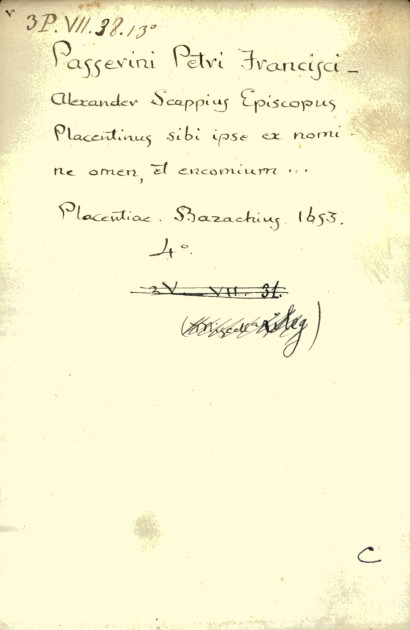 3P.VII.38.13°
Passerini Petri Francisci -
Alexander Scappius Episcopus
Placentinus sibi ipse ex nomi-
ne omen, et encomium ...
Placentiae. Bazachius. 1653.
4°.
3V. VII. 31.
C